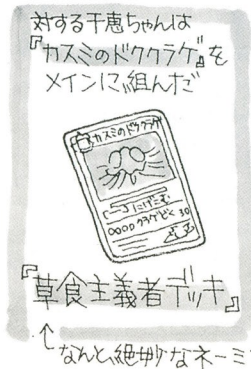 対する千恵ちゃんは
『カスミのドククラゲ』を
メインに組んだ
カスミのドククラゲ
にげこむ
クラゲどく 30
『草食主義者デッキ』
↑なんと、絶妙なネーミ